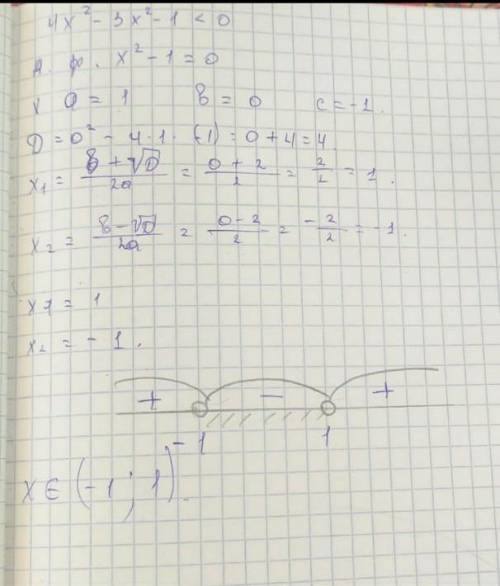 4x² - 3x² - 1 < 0
д. ф. x² - 1 = 0
a = 1 b = 0 c = -1.
D = 0² - 4·1·(-1) = 0 + 4 = 4.
x₁ = (b + √D)/2a = (0 + 2)/2 = 2/2 = 1.
x₂ = (b - √D)/2a = (0 - 2)/2 = -2/2 = -1.
x₁ = 1
x₂ = -1.
+ - +
-1 1
x ∈ (-1; 1).